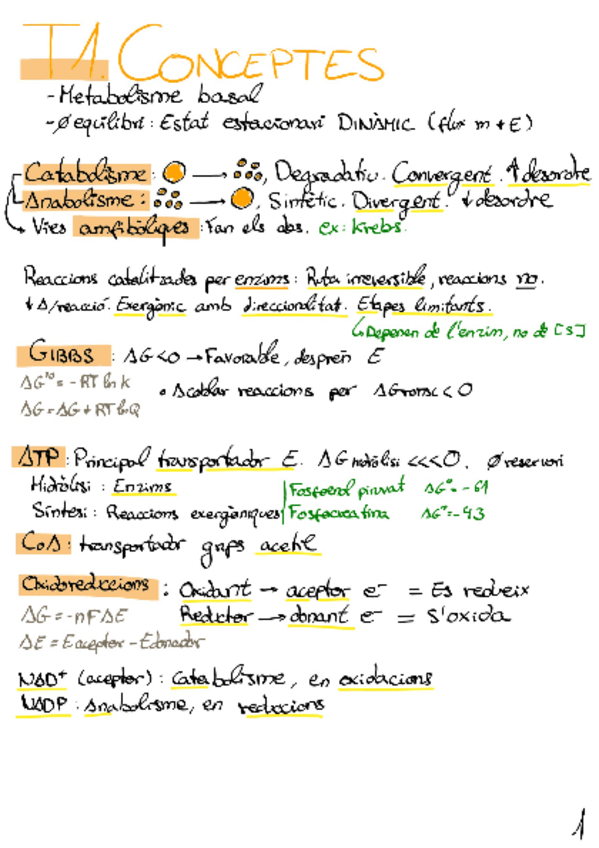 T1. CONCEPTES
- Metabolisme basal
- Ø equilibri: Estat estacionari DINÀMIC (flux m + E)
Catabolisme: → , Degradatiu. Convergent. ↑ desordre
Anabolisme: → , Sintètic. Divergent. ↓ desordre
Vies amfibòliques: Fan els dos. ex: Krebs.
Reaccions catalitzades per enzims: Ruta irreversible, reaccions no.
↓ Δ/reacció. Exergònic amb direccionalitat. Etapes limitants.
↳ Depenen de l'enzim, no de [S]
GIBBS: ΔG<0 → Favorable, desprèn E
ΔG'° = -RT ln k
• Acoblar reaccions per ΔG <0
ΔG = ΔG + RT lnQ
ATP: Principal transportador E. ΔG hidròlisi <<<0. Ø reservori
Hidròlisi: Enzims
Fosfoenol piruvat ΔG°=-61
Síntesi: Reaccions exergòniques
Fosfocreatina ΔG°=-43
CoA: transportador grups acetil
Oxidoreduccions: Oxidant → aceptor e⁻ = Es redueix
ΔG = -nFΔE
Reductor → donant e⁻ = S'oxida
ΔE = Eaceptor - Edonador
NAD⁺ (aceptor): Catabolisme, en oxidacions
NADP: Anabolisme, en reduccions
1